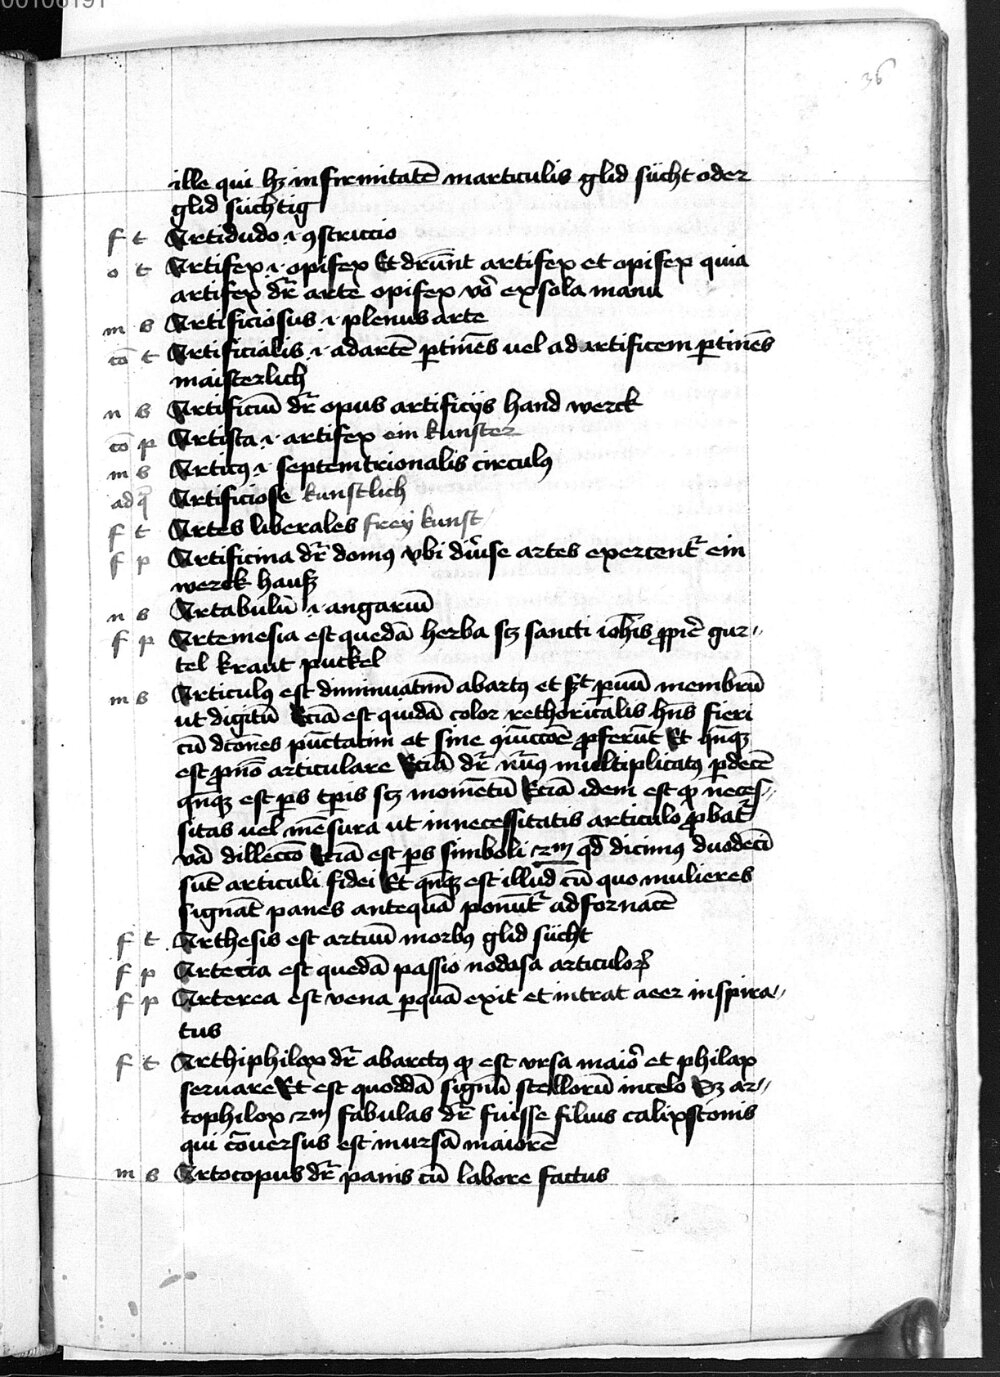 00106191
36
ille qui hꝫ infirmitatē in articulis glid sücht oder
glid süchtig
f t Artidudo .i. ꝯstriccio
o t Artifex .i. opifex Et dr̄unt artifex et opifex quia
artifex dr̄ arte opifex vo̊ ex sola manu
m b Artificiosus .i. plenus arte
cō t Artificialis .i. ad artē ꝑtinēs uel ad artificem ꝑtinēs
maisterlich
n b Artificiū dr̄ opus artificijs hand werck
cō p Artista .i. artifex ein kunster
m b Articꝰ .i. septemtrionalis circulꝰ
adq̄ Artificiose kunstlich
f t Artes liberales frey kunst
f p Artificina dr̄ domꝰ vbi diūse artes exercent᷑ ein
werck hauß
n b Artabulū .i. angariū
f p Artemesia est quedā herba sꝫ sancti ioh̄is ꝓpīe gur〃
tel kraut puckel
m b Articulꝰ est diminuatiuū ab artꝰ et sꝫt paruū membrū
ut digitū Etiā est quidā color rethoricalis hn̄s fieri
cū dictōnes pūctatim et sine ꝯiūccōe ꝓferūt Et qn̄qꝫ
est ꝓnō articulare Etiā dr̄ nūꝰ multiplicatꝰ ꝑ decē
qn̄qꝫ est ꝑs tp̄is sꝫ momētū Etiā idem est qꝫ neces〃
sitas uel mēsura ut in necessitatis articulo ꝓbat᷑
va̅ dilleccō Etiā est ꝑs simboli 2m qd̄ dicimꝰ duodeci̅
sūt articuli fidei Et qn̄qꝫ est illud cū quo mulieres
signāt panes antequā ponūt᷑ ad fornacē
f t Arthesis est artuū morbꝰ glid sücht
f p Artecia est quedā passio nodosa articulorꝫ
f p Arterea est vena ꝑ quā exit et intrat aeer inspira〃
tus
f t Arthiphilox dr̄ ab arctꝰ qꝫ est vrsa maior̄ et philax
seruare Et est quoddā signū stellorū in celo Sꝫ ar〃
tophilox 2m fabulas dr̄ fuisse filius calixstonis
qui cōuersus est in ursā maiorē
m b Artocopus dr̄ panis cū labore factus